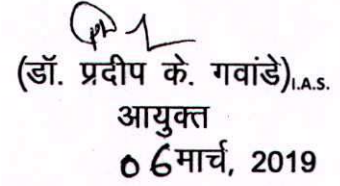 (डॉ. प्रदीप के. गवांडे)I.A.S.
आयुक्त
06 मार्च, 2019